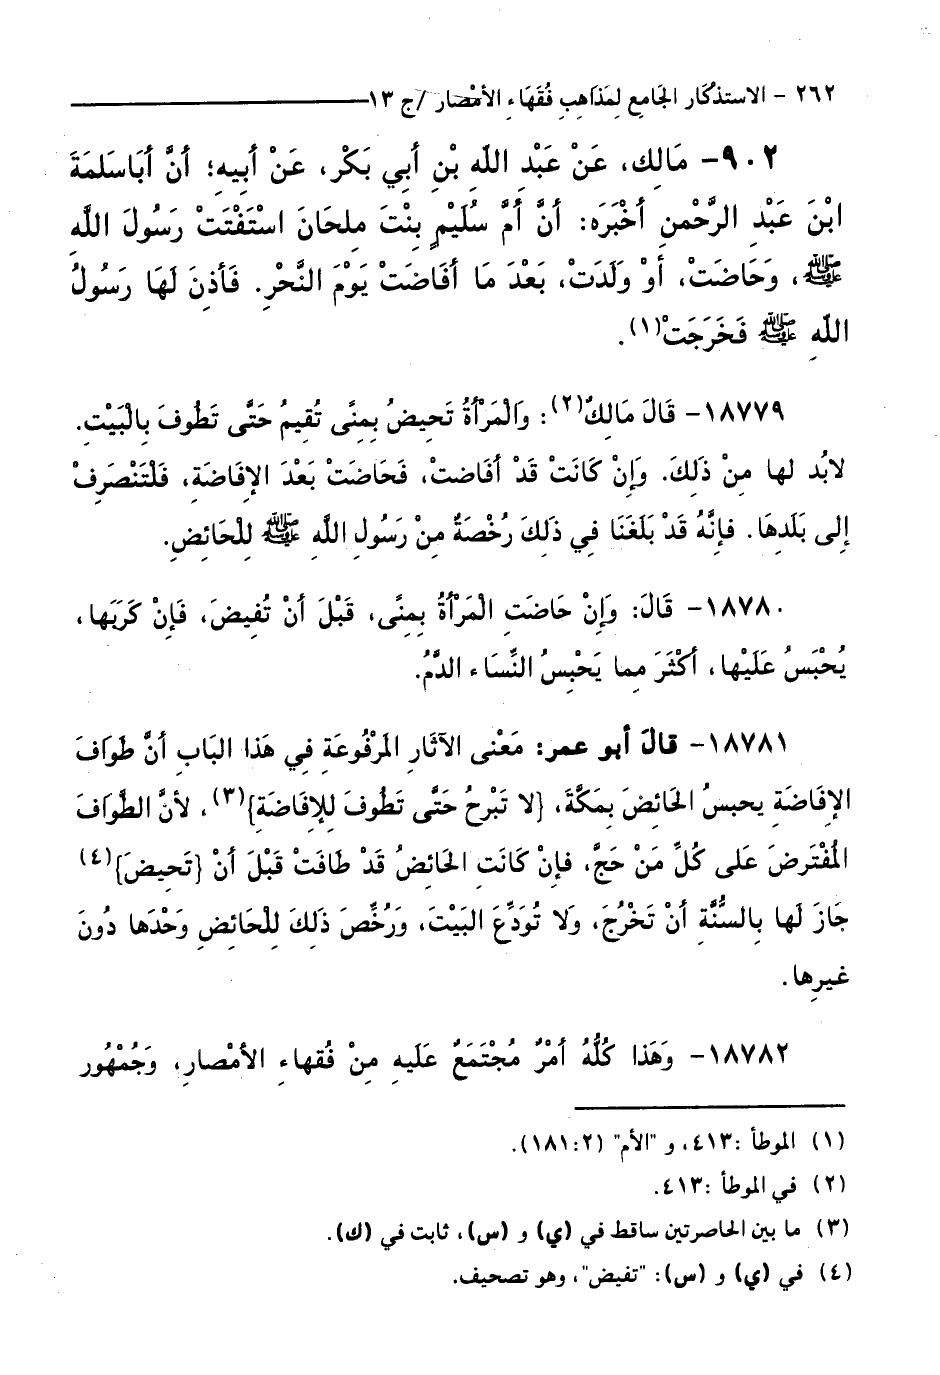 ٢٦٢ - الاستذكار الجَامِع لِمَذَاهِبِ فُقَهَاءِ الأَمْصَار /ج ١٣
٩٠٢- مَالِك، عَنْ عَبْدِ اللَّهِ بْنِ أبِي بَكْر، عَنْ أبِيهِ؛ أنَّ أبَاسَلمَةَ
ابْنَ عَبْدِ الرَّحْمنِ أخْبَرَه: أنَّ أمَّ سُلَيْمٍ بِنْتَ مِلحَانَ اسْتَفْتَتْ رَسُولَ اللَّهِ
ﷺ، وَحَاضَتْ، أوْ وَلَدَتْ، بَعْدَ مَا أفَاضَتْ يَوْمَ النَّحْرِ. فَأذِنَ لَهَا رَسُولُ
اللَّهِ ﷺ فَخَرَجَتْ(١).
١٨٧٧٩- قَالَ مَالِكٌ(٢): وَالْمَرْأةُ تَحِيضُ بِمِنًى تُقِيمُ حَتَّى تَطُوفَ بِالْبَيْتِ.
لابُد لها مِنْ ذَلِكَ. وَإِنْ كَانَتْ قَدْ أفَاضتْ، فَحَاضَتْ بَعْدَ الإفَاضَةِ، فَلْتَنْصَرِفْ
إلى بَلَدِهَا. فإنَّهُ قَدْ بَلَغَنَا فِي ذَلِكَ رُخْصَةٌ مِنْ رَسُولِ اللَّهِ ﷺ لِلْحَائِضِ.
١٨٧٨٠- قَالَ: وَإنْ حَاضَتِ الْمَرْأةُ بِمِنًى، قَبْلَ أنْ تُفِيضَ، فَإنْ كَرَبَها،
يُحْبَسُ عَلَيْها، أكْثَرَ مِما يَحْبِسُ النِّسَاء الدَّمُ.
١٨٧٨١- قالَ أبو عمر: مَعْنى الآثَارِ المَرْفُوعَةِ فِي هَذا البَابِ أنَّ طَوافَ
الإفَاضَةِ يحبسُ الحَائضَ بِمَكَّةَ، {لا تَبْرحُ حَتَّى تَطُوفَ لِلإفَاضَةِ}(٣)، لأنَّ الطَّوافَ
المُفْتَرضَ عَلى كُلِّ مَنْ حَجَّ، فإنْ كَانَتِ الحَائضُ قَدْ طَافَتْ قَبْلَ أنْ {تَحِيضَ}(٤)
جَازَ لَها بِالسُّنَّةِ أنْ تَخْرُجَ، وَلا تُودِّعَ البَيْتَ، وَرُخِّصَ ذَلِكَ لِلْحَائِضِ وَحْدَها دُونَ
غيرِها.
١٨٧٨٢- وَهَذا كُلُّهُ أمْرٌ مُجْتَمَعٌ عَليهِ مِنْ فُقهاءِ الأمْصارِ، وَجُمْهُورِ
(١) الموطأ :٤١٣، و "الأم" (١٨١:٢).
(٢) في الموطأ :٤١٣.
(٣) ما بين الحاصرتين ساقط في (ي) و (س)، ثابت في (ك).
(٤) في (ي) و (س): "تفيض"، وهو تصحيف.